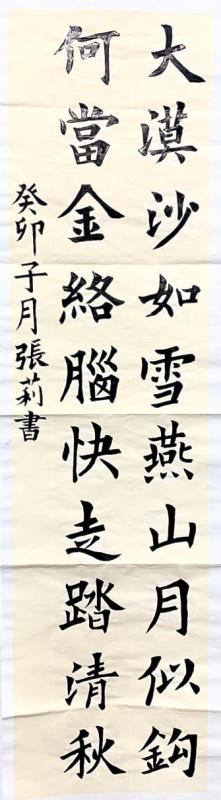 大漠沙如雪燕山月似鈎
何當金絡腦快走踏清秋
癸卯子月張莉書